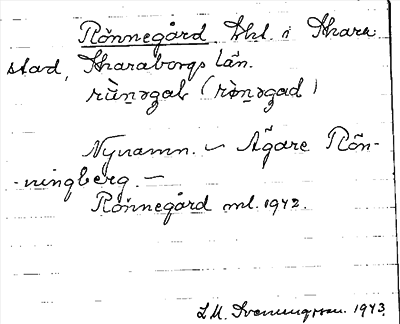 Rönnegård thl. i Skara
stad, Skaraborgs län.
rùn̥əgaḷ (røn̥əgad)
Nynamn. – Ägare Rön-
-ningberg. –
Rönnegård ml. 1942.
L.M. Svenungsson. 1943.